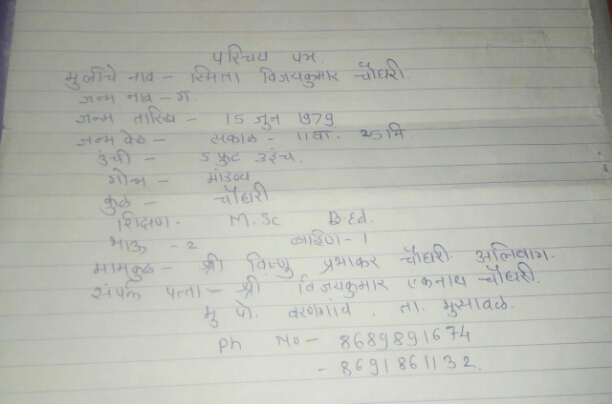 परिचय पत्र.
मुलीचे नाव - स्मिता विजयकुमार चौधरी.
जन्म नाव - ग.
जन्म तारिख - 15 जुन 1979
जन्म वेळ - सकाळ - 11वा. 25मि
उंची - 5 फुट 3इंच.
गोत्र - मांडव्य
कुळ - चौधरी.
शिक्षण- M.Sc B.Ed.
भाऊ - 2 बहिण - 1
मामकुळ - श्री विष्णु प्रभाकर चौधरी. अलिबाग.
संपर्क पत्ता - श्री विजयकुमार एकनाथ चौधरी.
मु पो. वरणगांव. ता. भुसावळ.
Ph No - 8689891674
- 8691861132.